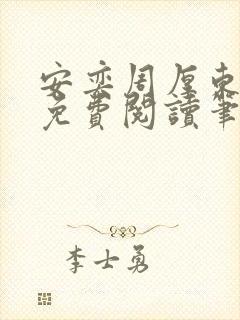 安奕周厚東
免費閱讀筆
李士勇